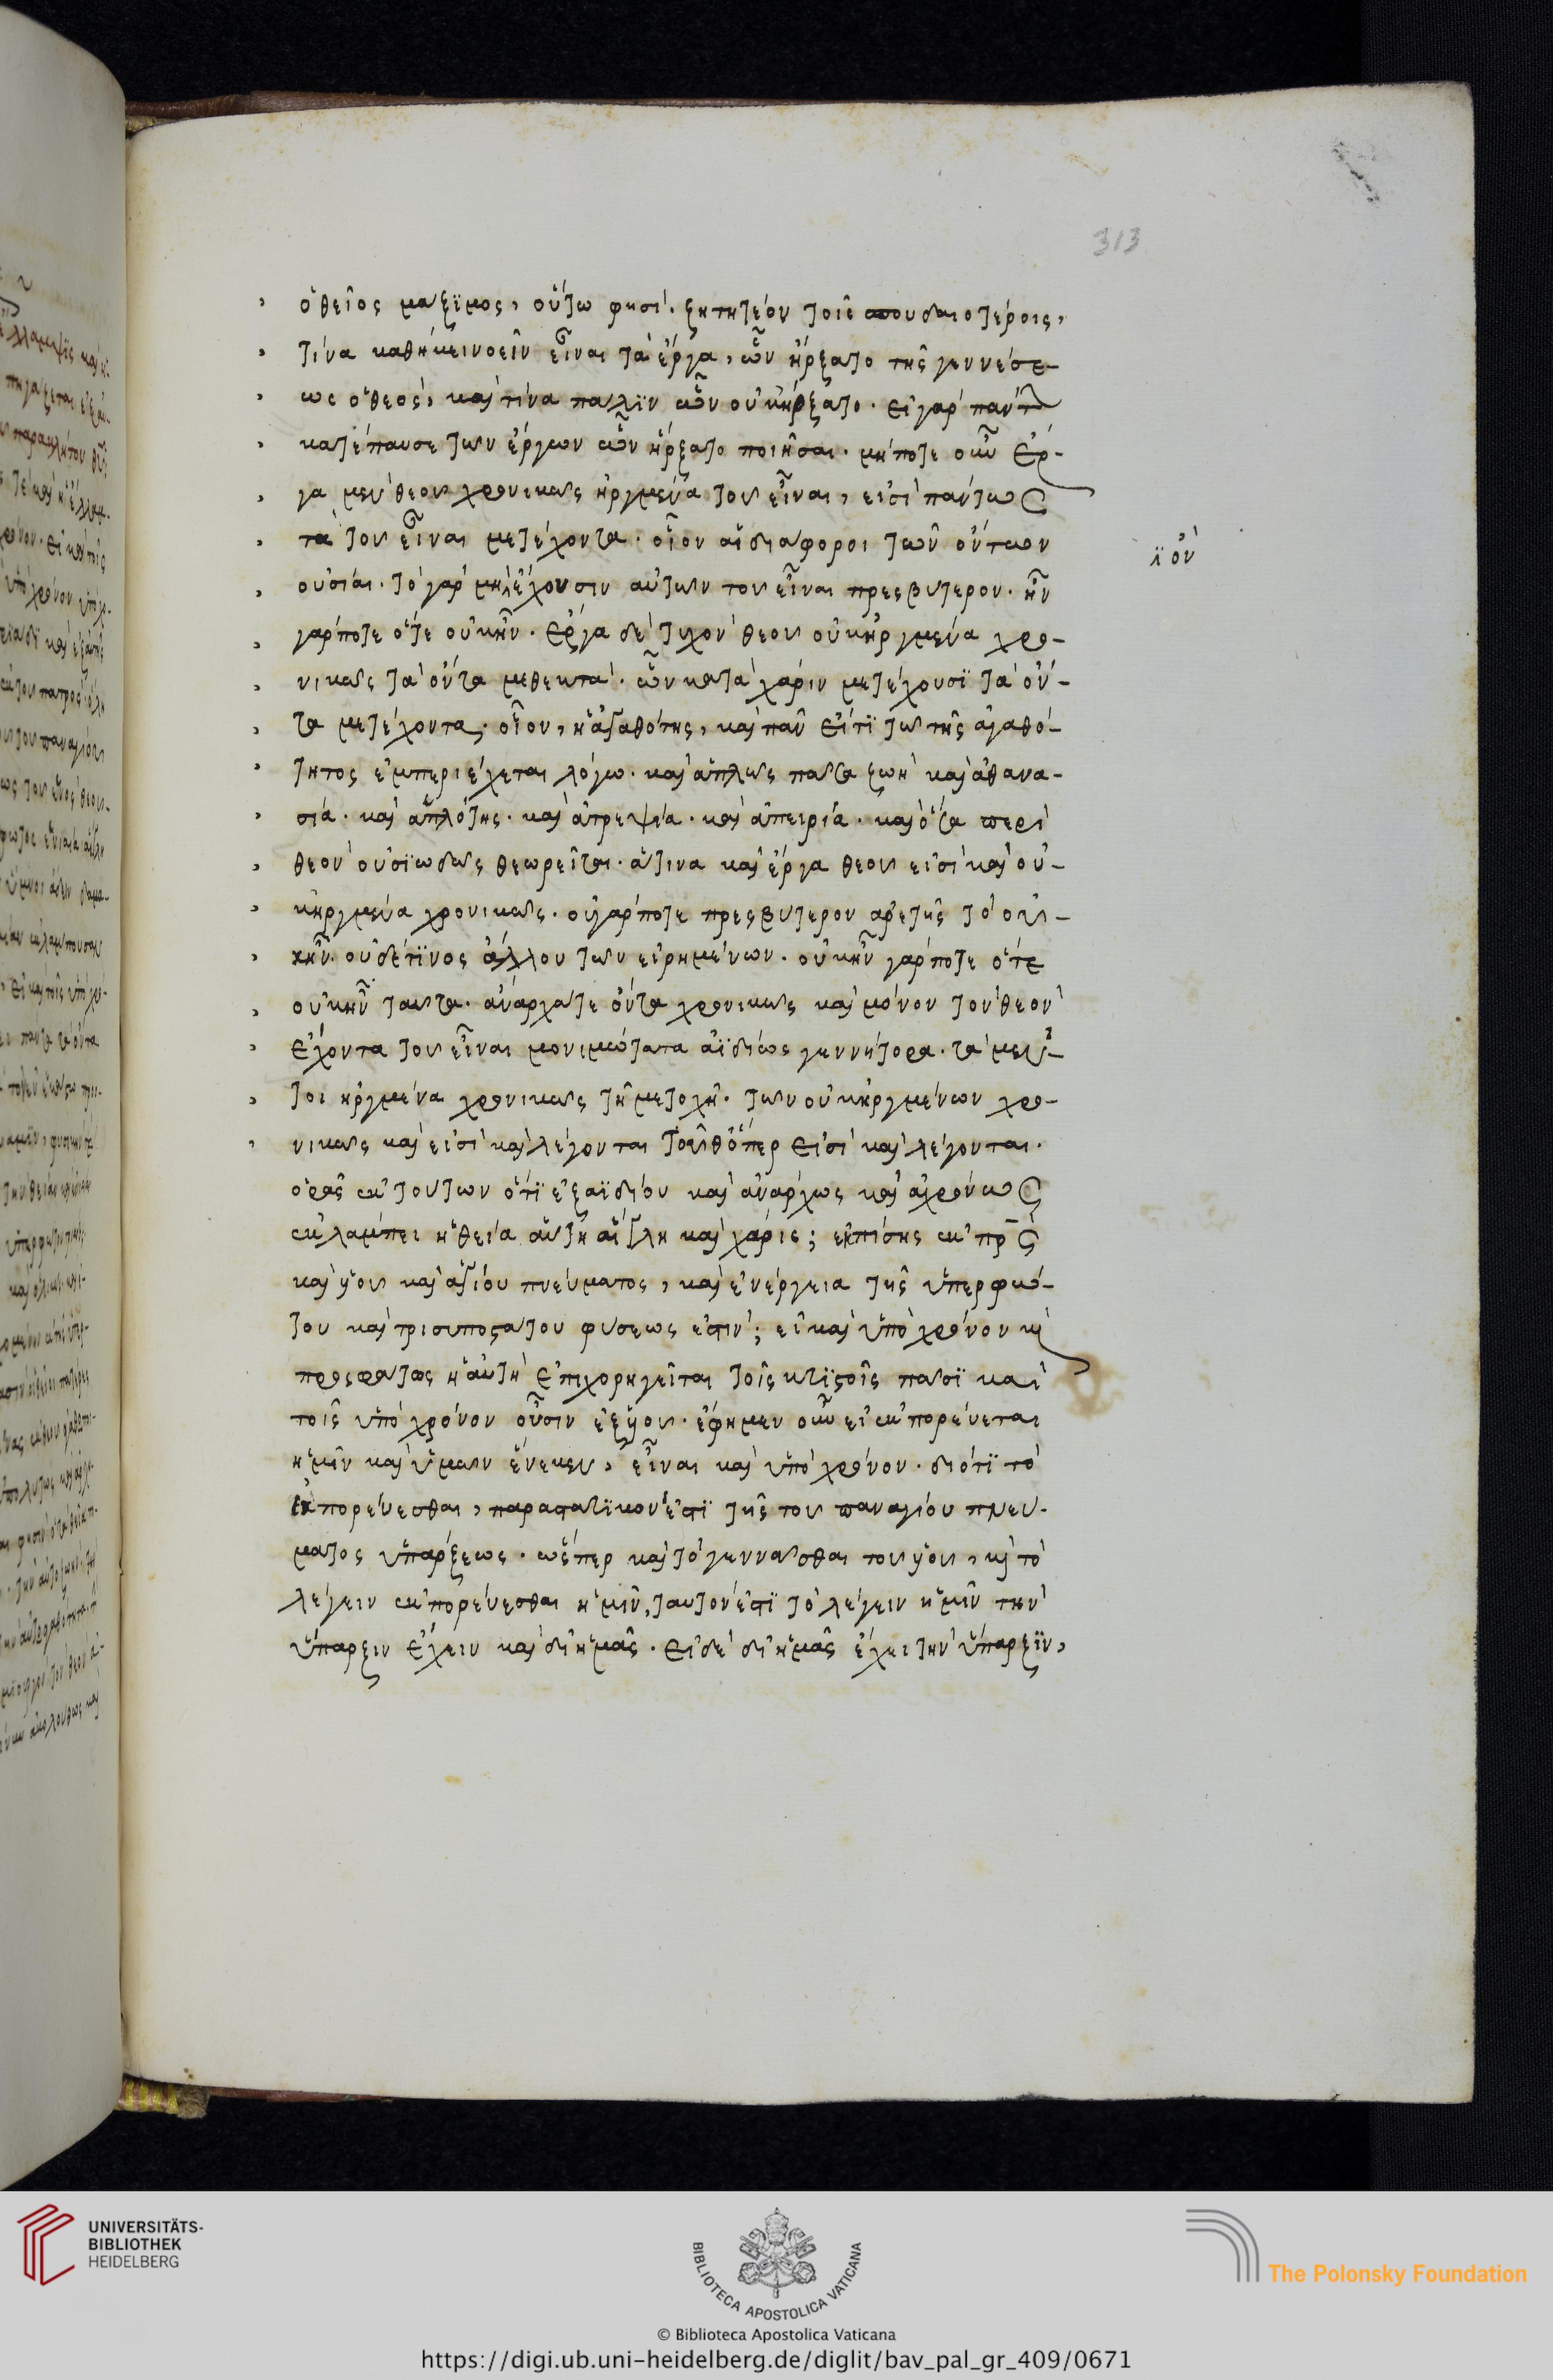 313
ὁ θεῖος μάξιμος, οὕτω φησί· ζητητέον τοῖς σπουδαιοτέροις,
τίνα καθήκει νοεῖν εἶναι τὰ ἔργα, ὧν ἤρξατο τῆς γενέσε-
ως ὁ θεός, καὶ τίνα πάλιν ὧν οὐκ ἤρξατο. εἰ γὰρ πάντων
κατέπαυσε τῶν ἔργων ὧν ἤρξατο ποιῆσαι. μήποτε οὖν ἔρ-
γα μὲν θεοῦ χρονικῶς ἠργμένα τοῦ εἶναι, εἰσὶ πάντως
τὰ τοῦ εἶναι μετέχοντα. οἷον αἱ διάφοροι τῶν ὄντων
οὐσίαι. τὸ γὰρ μὴ ἔχουσιν αὐτῶν τοῦ εἶναι πρεσβύτερον. ἦν
λ ὂν
γάρ ποτε ὅτε οὐκ ἦν. ἔργα δὲ τυχὸν θεοῦ οὐκ ἠργμένα χρο-
νικῶς τὰ ὄντα μεθεκτά. ὧν κατὰ χάριν μετέχουσι τὰ ὄν-
τα μετέχοντα, οἷον, ἡ ἀγαθότης, καὶ πᾶν εἴ τι τῷ τῆς ἀγαθό-
τητος ἐμπεριέχεται λόγῳ. καὶ ἁπλῶς πᾶσα ζωὴ καὶ ἀθανα-
σία. καὶ ἁπλότης. καὶ ἀτρεψία. καὶ ἀπειρία. καὶ ὅσα περὶ
θεὸν οὐσιωδῶς θεωρεῖται. ἅτινα καὶ ἔργα θεοῦ εἰσὶ καὶ οὐ-
κ ἠργμένα χρονικῶς. οὐ γάρ ποτε πρεσβύτερον ἀρετῆς τὸ οὐ-
κ ἦν. οὐδέ τινος ἄλλου τῶν εἰρημένων. οὐκ ἦν γάρ ποτε ὅτε
οὐκ ἦν ταῦτα. ἄναρχά τε ὄντα χρονικῶς καὶ μόνον τὸν θεὸν
ἔχοντα τοῦ εἶναι μονιμώτατα ἀϊδίως γεννήτορα. τὰ μέν-
τοι ἠργμένα χρονικῶς τῇ μετοχῇ. τῶν οὐκ ἠργμένων χρο-
νικῶς καὶ εἰσὶ καὶ λέγονται τοῦθ' ὅπερ εἰσὶ καὶ λέγονται.
ὁρᾷς ἐκ τούτων ὅτι ἐξ ἀϊδίου καὶ ἀνάρχως καὶ ἀχρόνως
ἐκλάμπει ἡ θεία αὕτη αἴγλη καὶ χάρις; ἐπίσης ἐκ πρς
καὶ υἱοῦ καὶ ἁγίου πνεύματος, καὶ ἐνέργεια τῆς ὑπερφώ-
του καὶ τρισυποστάτου φύσεως ἐστίν; εἰ καὶ ὑπὸ χρόνον καὶ
προσφάτως ἡ αὐτὴ ἐπιχορηγεῖται τοῖς κτιστοῖς πᾶσι καὶ
τοῖς ὑπὸ χρόνον οὖσιν ἐξ υἱοῦ. ἔφημεν οὖν εἰ ἐκπορεύεται
ἡμῖν καὶ ἡμῶν ἕνεκεν, εἶναι καὶ ὑπὸ χρόνον. διότι τὸ
ἐκπορεύεσθαι, παραστατικόν ἐστι τῆς τοῦ παναγίου πνεύ-
ματος ὑπάρξεως. ὥσπερ καὶ τὸ γεννᾶσθαι τοῦ υἱοῦ, καὶ τὸ
λέγειν ἐκπορεύεσθαι ἡμῖν, ταυτόν ἐστι τὸ λέγειν ἡμῖν τὴν
ὕπαρξιν ἔχειν καὶ δι' ἡμᾶς. εἰ δὲ δι' ἡμᾶς ἔχει τὴν ὕπαρξιν,
UNIVERSITÄTS-
BIBLIOTHEK
HEIDELBERG
BIBLIOTECA APOSTOLICA VATICANA
The Polonsky Foundation
© Biblioteca Apostolica Vaticana
https://digi.ub.uni-heidelberg.de/diglit/bav_pal_gr_409/0671